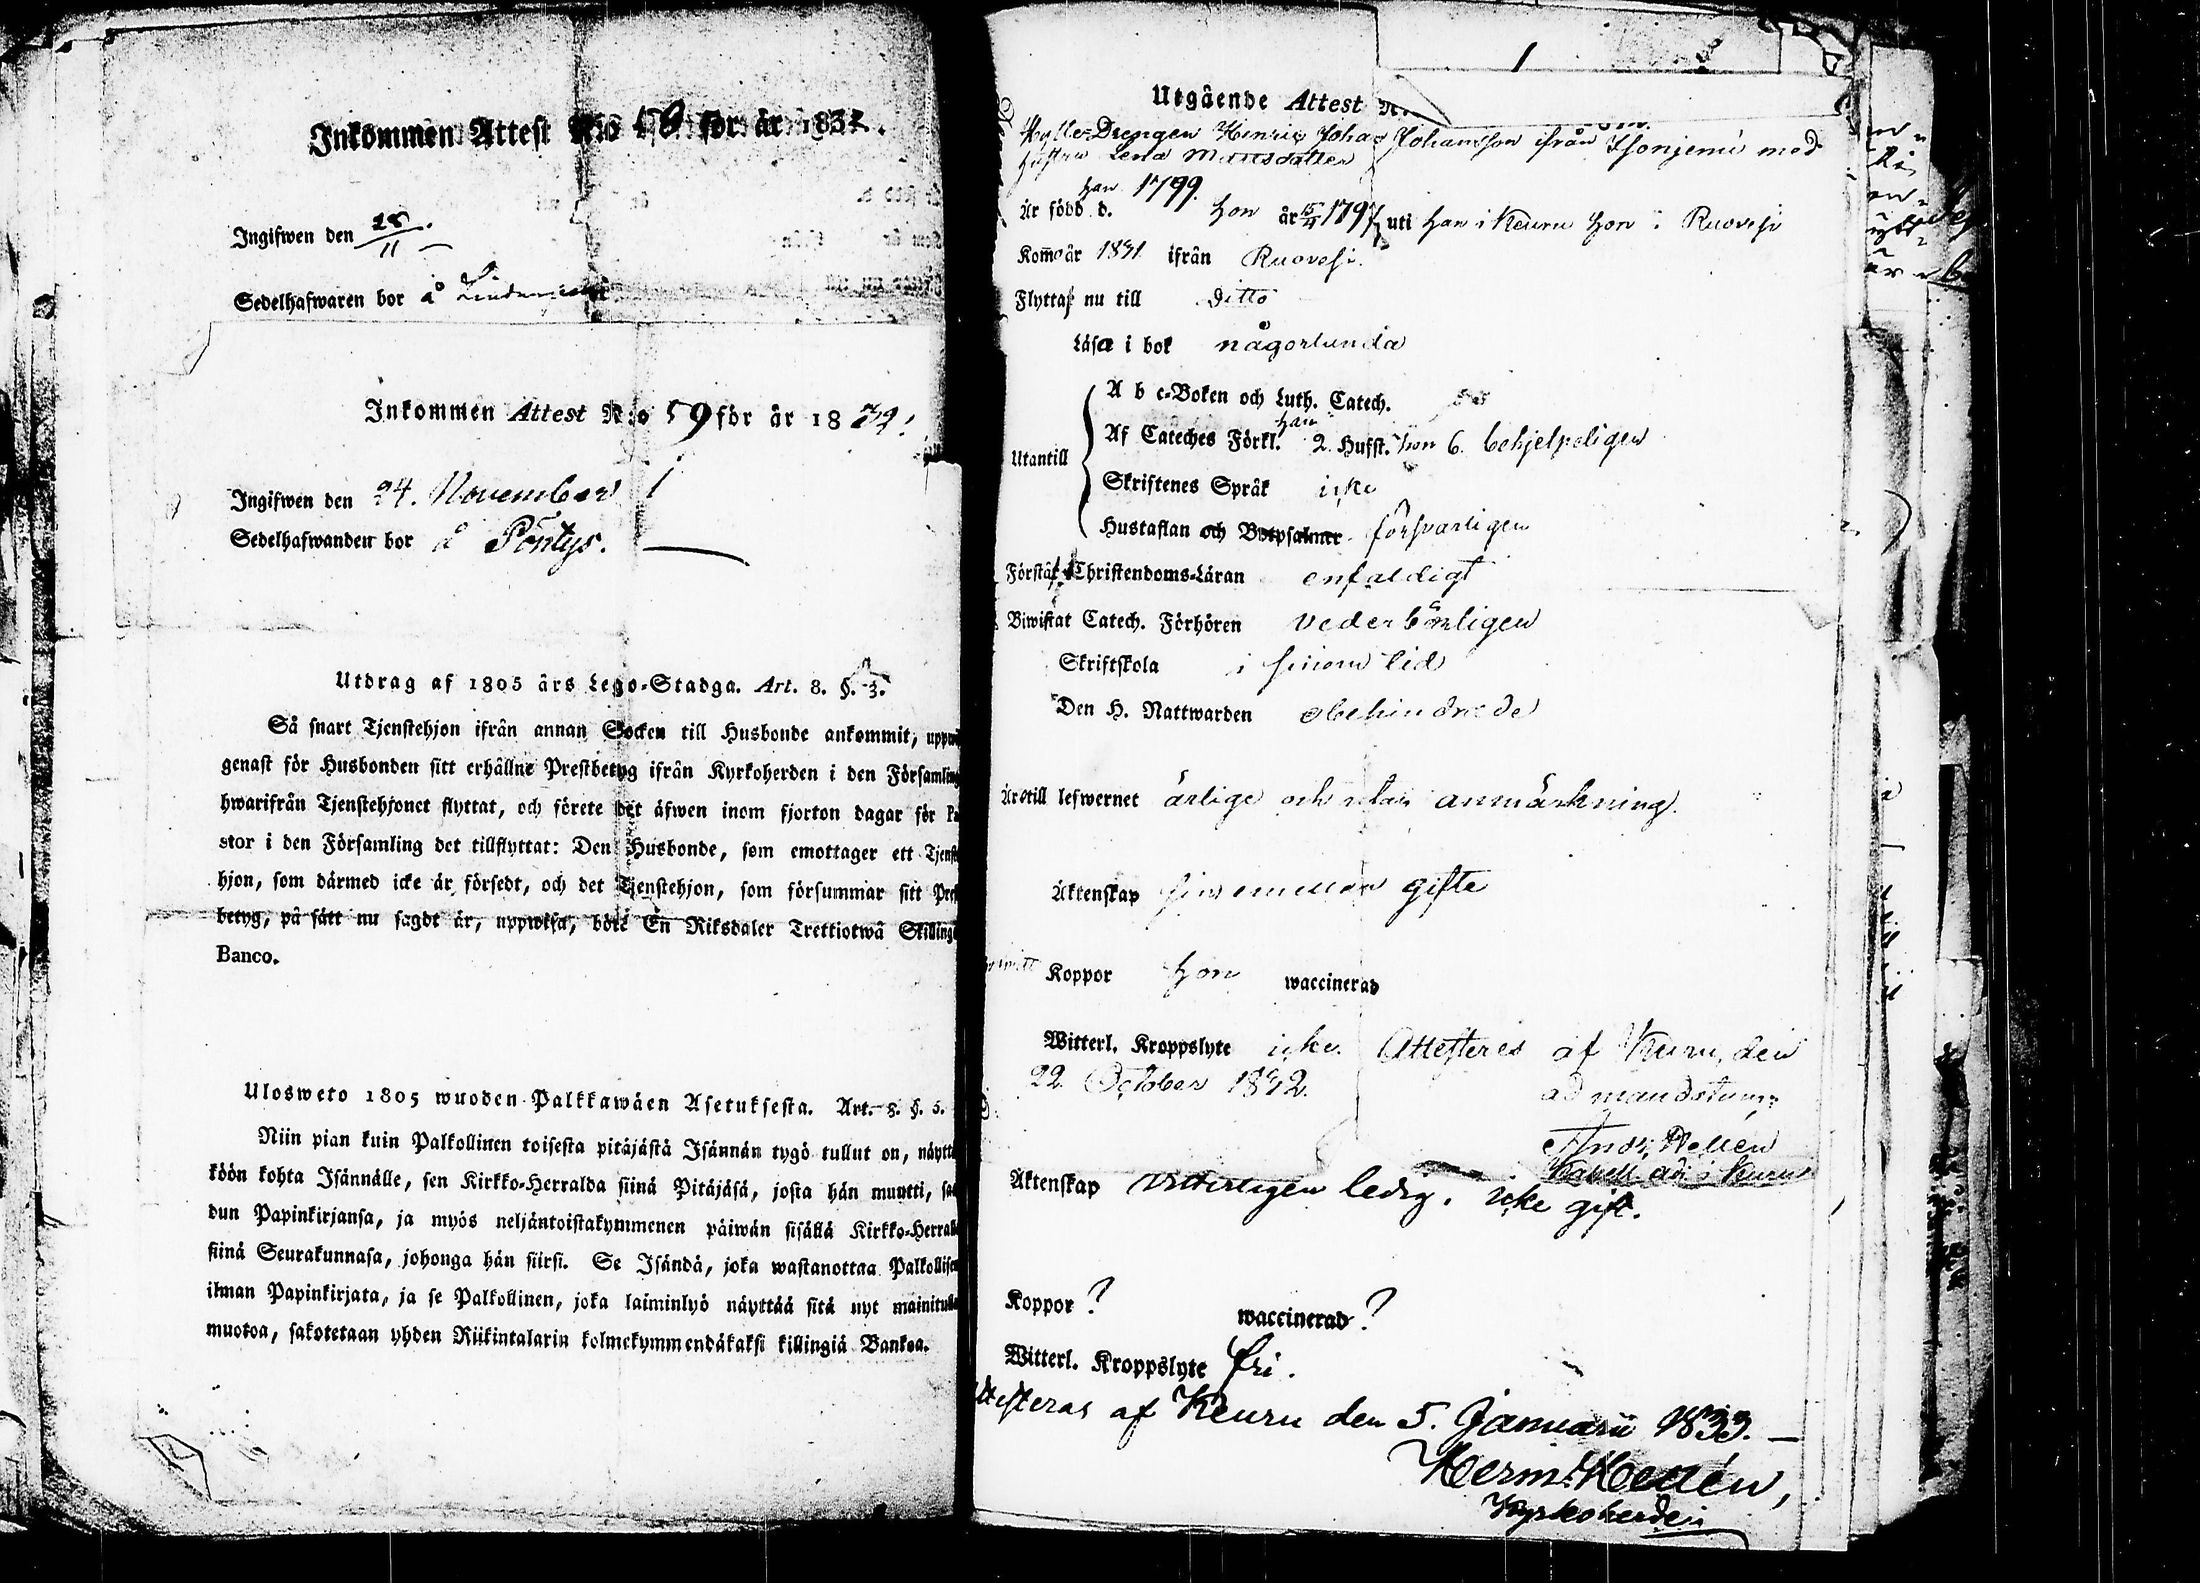 Inkommen Attest N:o 58 för år 1832.
Ingifwen den 28/11
Sedelhafwaren bor å
Inkommen Attest N:o 59 för år 1832.
Ingifwen den 24. November
Sedelhafwanden bor å Pöntys.
Utdrag af 1805 års Lego-Stadga. Art. 8. §. 3.
Så snart Tjenstehjon ifrån annan Socken till Husbonde ankommit,
genast för Husbonden sitt erhållne Prestbetyg ifrån Kyrkoherden i den Församling
hwarifrån Tjenstehjonet flyttat, och förete det äfwen inom fjorton dagar för Pa
stor i den Församling det tillflyttat: Den Husbonde, som emottager ett Tjenste
hjon, som därmed icke är försedt, och det Tjenstehjon, som försummar sitt Prest
betyg, på sätt nu sagdt är, uppwisa, böte En Riksdaler Trettiotwå Skilling
Banco.
Ulosweto 1805 wuoden Palkkawäen Asetuksesta. Art. 8. §. 3.
Niin pian kuin Palkollinen toisesta pitäjästä Isännän tygö tullut on, näyttä
köön kohta Isännälle, sen Kirkko-Herralda siinä Pitäjäsä, josta hän muutti, saa
dun Papinkirjansa, ja myös neljäntoistakymmenen päiwän sisällä Kirkko-Herralle
siinä Seurakunnasa, johonga hän siirsi. Se Isändä, joka wastanottaa Palkollisen
ilman Papinkirjata, ja se Palkollinen, joka laiminlyö näyttää sitä nyt mainitulla
muotoa, sakotetaan yhden Riikintalarin kolmekymmendäkaksi killingiä Bankoa.
1
Utgående Attest N:
Drengen Henric Johan Johansson ifrån med
hustru Lena Mattsdotter
han 1799.
Är född d. hon år 15/4 1797 uti han i Keuru hon i Ruovesi
Kom år 1831 ifrån Ruovesi.
Flyttar nu till Ditto
Läsa i bok någorlunda
Utantill
A b c-Boken och Luth. Catech.
Af Cateches Förkl. han 2. Hufst. hon 6. behjelpeligen
Skriftenes Språk icke
Hustaflan och Botpsalmer försvarligen
Förstå Christendoms-Läran enfaldigt
Biwistat Catech. Förhören vederbörligen
Skriftskola i sinom tid
Den H. Nattwarden obehindrade
Äro till lefwernet ärlige och utan anmärkning.
Äktenskap sins emellan gifte
Koppor hon waccinerad
Witterl. Kroppslyte icke. Attesteres af Keuru, den
22. October 1832.
ad mandatum:
Hellén
Äktenskap vitterligen ledig. icke gift.
Koppor ? waccinerad ?
Witterl. Kroppslyte fri.
Attesteras af Keuru den 5. Januarii 1833.
Herm: Hellén,
Kyrkoherde